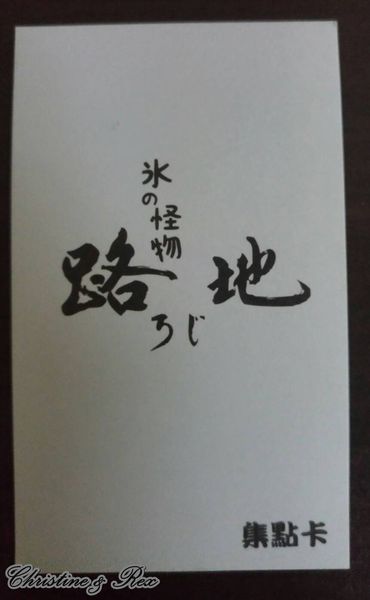 氷の怪物
路地
ろじ
集點卡
Christine & Rex